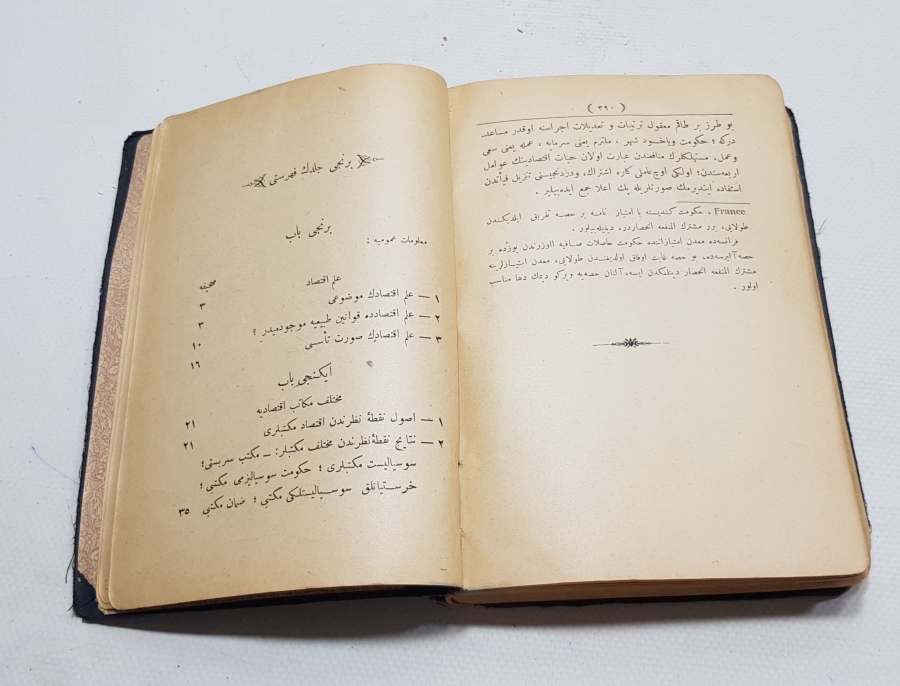 ( ٣٩٠ )
بو طرز بر طاقم معقول ترتیبات و تعدیلات اجراسنه اوقدر مساعد
درکه ؛ حکومت ویاخود شهر ، ملتزم یعنی سرمایه ، عمله یعنی سعی
وعمل ، مستهلکلرك منافعندن عبارت اولان حیات اقتصادینك عوامل
اربعه‌سندن ؛ اولکی اوچ عاملی کاره اشتراك، ودردنجیسنی تنزیل فیأتدن
استفاده ایتدیرمك صورتلریله پك اعلا جمع ایده‌بیلیر .
France ، حکومت کندیسنه با امتیاز نامه بر حصه تفریق ایلدیکندن
طولایی، برر مشترك المنفعه انحصاردر، دینیله‌بیلور .
فرانسه‌ده معدن امتیازاتنده حکومت حاصلات صافیه اوزرندن یوزده بر
حصه آلیرسه‌ده، بو حصه غایت اوفاق اولدیغندن طولایی، معدن امتیازلرینه
مشترك المنفعه انحصار دینلمکدن ایسه، آلنان حصه‌یه ویرکو دیمك دها مناسب
اولور .
برنجی جلدك فهرستی
برنجی باب
معلومات عمومیه :
علم اقتصاد
صحیفه
١ — علم اقتصادك موضوعی ٣
٢ — علم اقتصادده قوانین طبیعیه موجودمیدر ؟ ٣
٣ — علم اقتصادك صورت تأسسی ١٠
١٦
ایکنجی باب
مختلف مکاتب اقتصادیه
١ — اصول نقطهٔ نظرندن اقتصاد مکتبلری ٢١
٢ — نتایج نقطهٔ نظرندن مختلف مکتبلر: — مکتب سربستی؛ ٢١
سوسیالیست مکتبلری ؛ حکومت سوسیالیزمی مکتبی ؛
خرستیانلق سوسیالیستلکی مکتبی ؛ ضمان مکتبی ٣٥